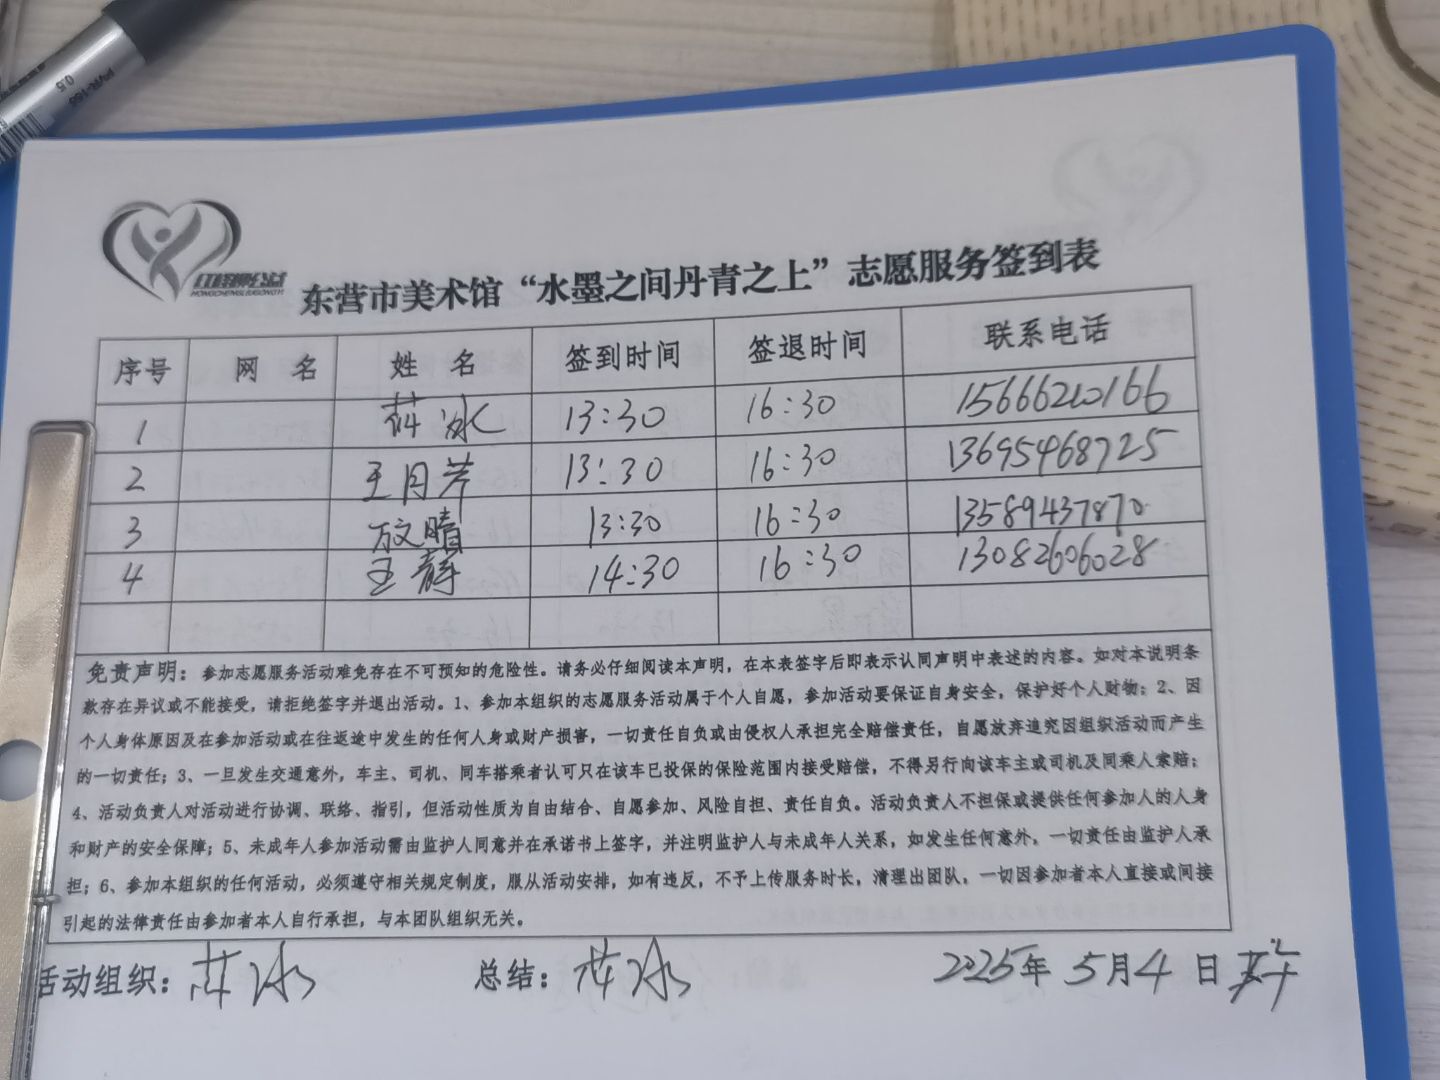 PVR-155
0.5
HONGCHENGLUGONGYI
东营市美术馆“水墨之间丹青之上”志愿服务签到表
序号 网 名 姓 名 签到时间 签退时间 联系电话
1 冰 13:30 16:30 15666210166
2 王月芹 13:30 16:30 13695468725
3 晴 13:30 16:30 13589437870
4 王静 14:30 16:30 13082606028
免责声明：参加志愿服务活动难免存在不可预知的危险性。请务必仔细阅读本声明，在本表签字后即表示认同声明中表述的内容。如对本说明条
款存在异议或不能接受，请拒绝签字并退出活动。1、参加本组织的志愿服务活动属于个人自愿，参加活动要保证自身安全，保护好个人财物；2、因
个人身体原因及在参加活动或在往返途中发生的任何人身或财产损害，一切责任自负或由侵权人承担完全赔偿责任，自愿放弃追究因组织活动而产生
的一切责任；3、一旦发生交通意外，车主、司机、同车搭乘者认可只在该车已投保的保险范围内接受赔偿，不得另行向该车主或司机及同乘人索赔；
4、活动负责人对活动进行协调、联络、指引，但活动性质为自由结合、自愿参加、风险自担、责任自负。活动负责人不担保或提供任何参加人的人身
和财产的安全保障；5、未成年人参加活动需由监护人同意并在承诺书上签字，并注明监护人与未成年人关系，如发生任何意外，一切责任由监护人承
担；6、参加本组织的任何活动，必须遵守相关规定制度，服从活动安排，如有违反，不予上传服务时长，清理出团队，一切因参加者本人直接或间接
引起的法律责任由参加者本人自行承担，与本团队组织无关。
活动组织： 冰 总结： 冰 2025年 5月4日